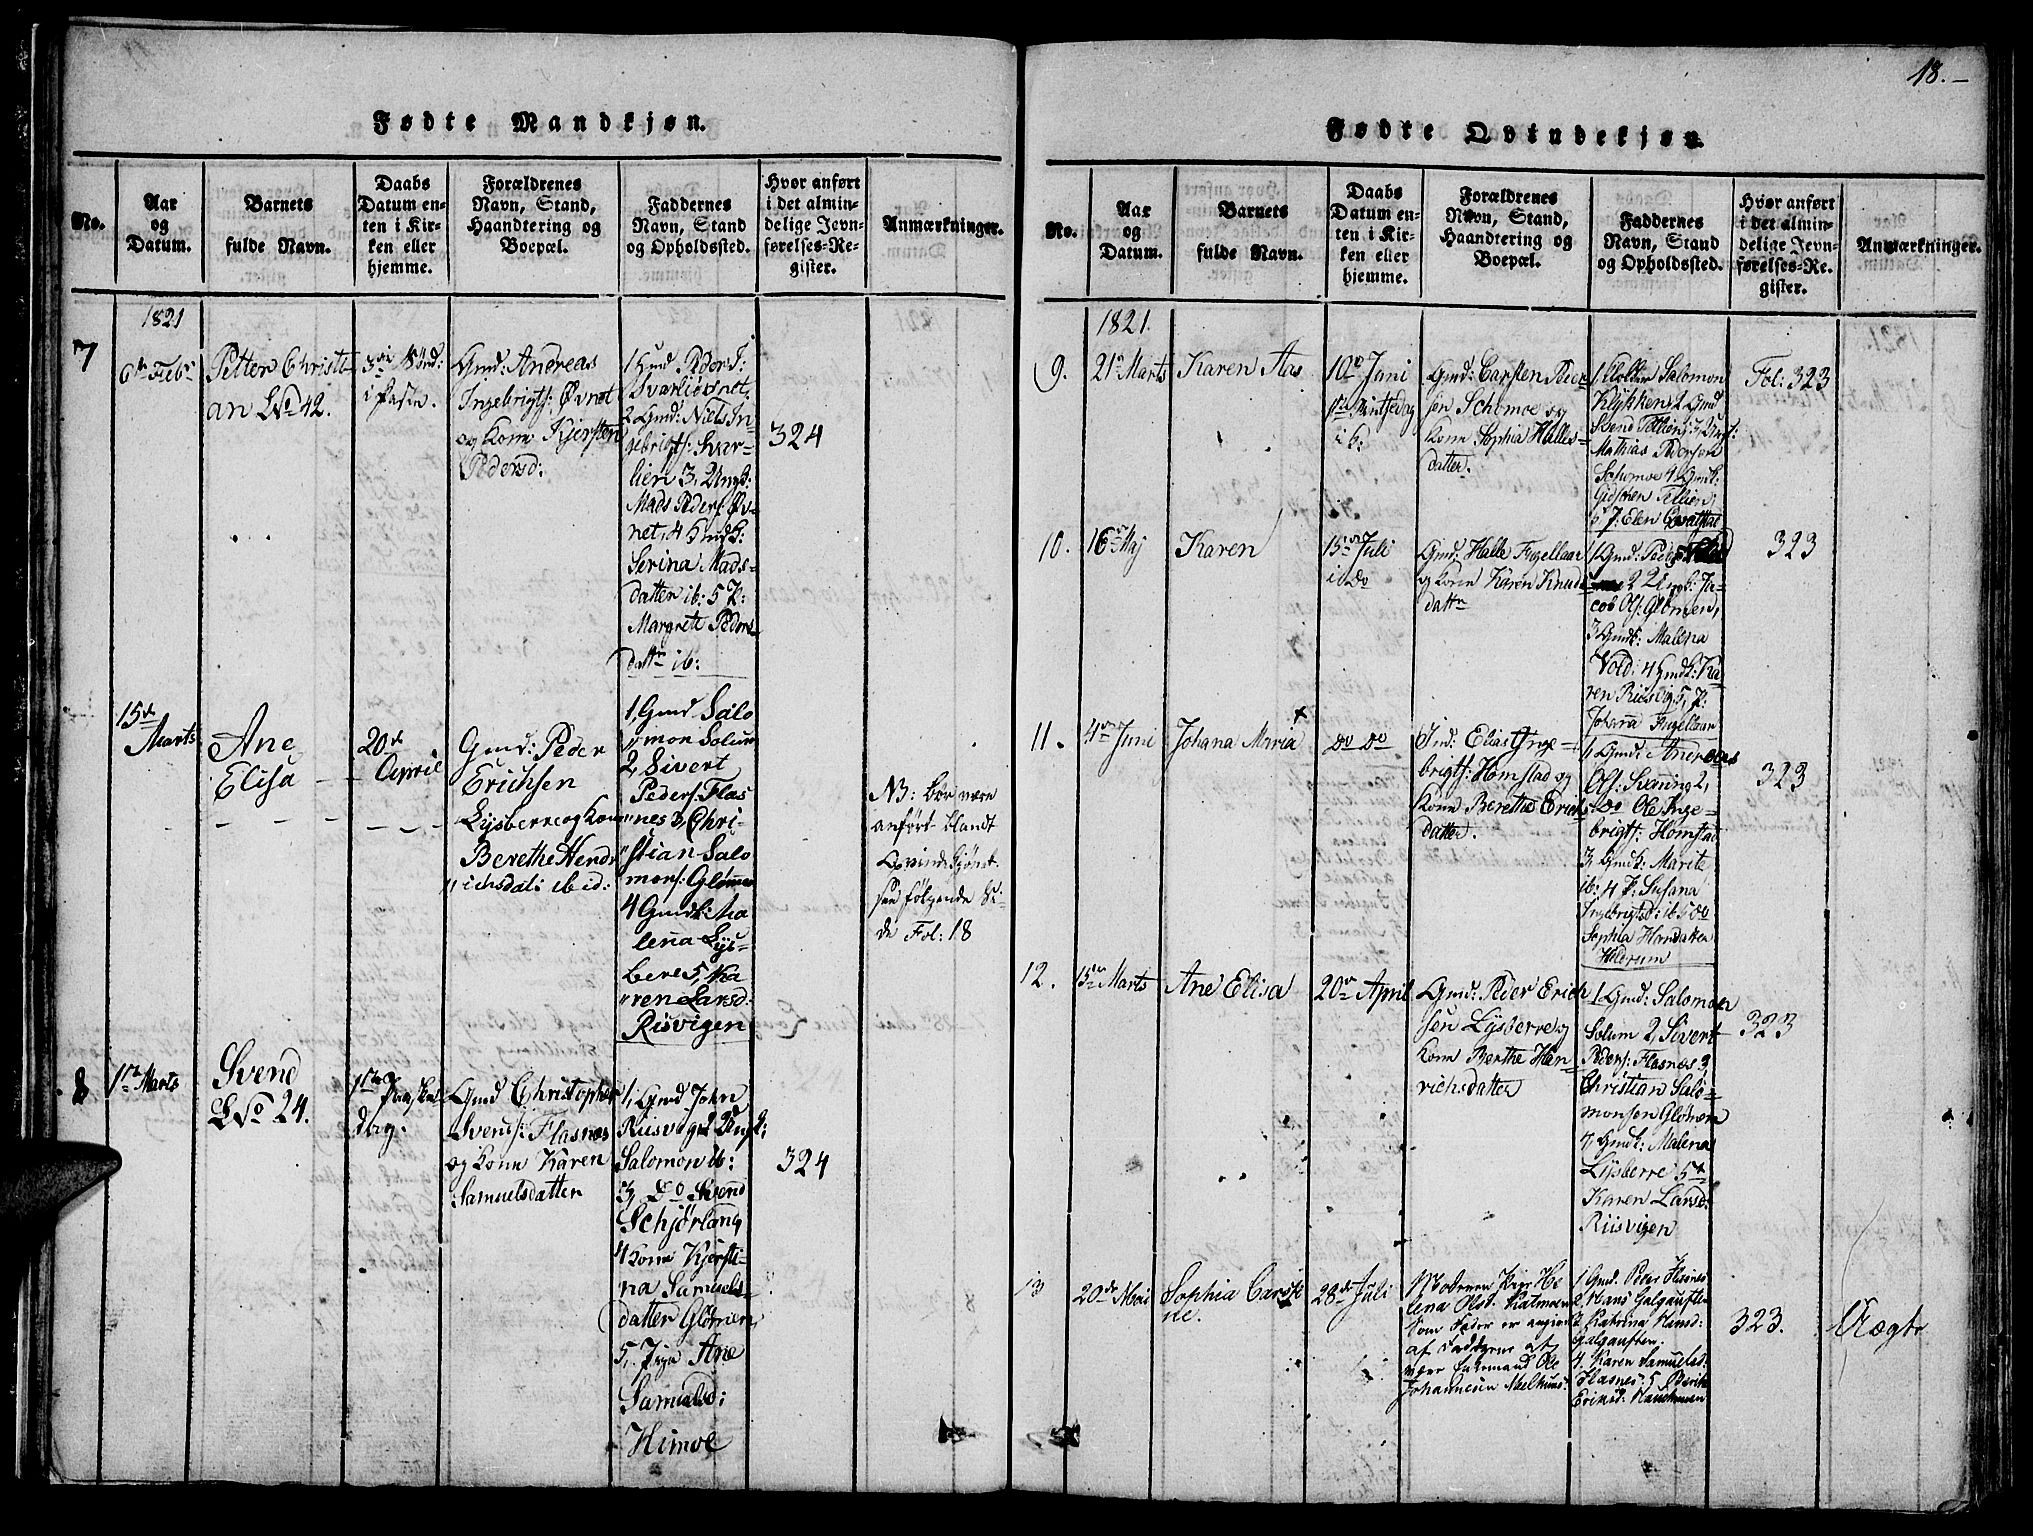 Fødte Mandkjøn.
No.
Aar
og
Datum.
Barnets
fulde Navn.
Daabs
Datum en-
ten i Kir-
ken eller
hjemme.
Forældrenes
Navn, Stand,
Haandtering og
Boepæl.
Faddernes
Navn, Stand
og Opholdssted.
Hvor anført
i det almin-
delige Jevn-
førelses-Re-
gister.
Anmærkninger.
1821
7
6te Febr
Petter Christi-
an No 42.
Gmd: Andreas
Ingebrigts: Øvnet
og Kone Kjersten
Pedersd:
2 Gmd: Niels In-
gebrigts: Svar-
lien 3, Ungk:
Mads Peders: Øv-
net, 4 Gmdk:
Serina Mads-
datter ib: 5 P:
Margrete Peders-
dattr ib:
324
15de
Marts
Ane
Elisa
20de
April
Gmd: Peder
Erichsen
Lysberre og Kone
Berethe Hend-
richsdat: ibid:
1, Gmd Salo
mon Solum
2, Sivert
Peders: Flas
nes 3, Chri-
stian Salo
mons: Glømen
4 Gmdk: Ma
lena Lys-
berre 5, Ka
ren Larsd:
Risvigen
NB: bør være
anført blandt
Qvindekjønet
see følgende Si-
de Fol: 18
8
1ste Marts
Svend
No 24.
1ste Paaske-
dag.
Gmd Christopher
Svends: Flasnes
og Kone Karen
Samuelsdatter
1, Gmd John
Riisvig 2 Ungk:
Salomon ib:
3, Do Svend
Schjørland
4 Kone Kjersti-
na Samuels-
datter Glømen,
5, Pige Ane
Samuelsd:
Himoe
324
18.
Fødte Qvindekjøn.
No.
Aar
og
Datum.
Barnets
fulde Navn.
Daabs
Datum en-
ten i Kir-
ken eller
hjemme.
Forældrenes
Navn, Stand,
Haandtering og
Boepæl.
Faddernes
Navn, Stand
og Opholdssted.
Hvor anført
i det almin-
delige Jevn-
førelses-Re-
gister.
Anmærkninger.
1821.
9.
21de Marts
Karen Aas
10de Juni
Gmd: Carsten Peder
sen Schomoe og
Kone Sophia Halles-
datter.
Salomon
Klykken 2 Gmd
Mathias Pedersen
Schomoe 4 Gmdk:
Fol: 323
10.
16de Maj
Karen
15de Juli
i Do
Gmd: Halle Fugellaar
og Kone Karen Knuds
dattr
1 Gmd: Peder
2 Ungk: Ja-
cob Ols: Glømen,
3 Gmdk: Malena
Vold: 4 Gmdk: Ka
ren Riisvig 5, P:
Johana Fugellaar
323
11.
4de Juni
Johana Maria
Do Do
Ind: Elias Inge-
brigts: Homstad og
Kone Berethe Erichs
datter.
1, Gmd: Andreas
Ols: Svening 2,
Do Ole Inge-
brigts: Homstad
3, Gmdk: Marite
ib: 4 P: Susana
Ingebrigtsd: ib 5 Do
Sophia Hansdatter
323
12.
15de Marts
Ane Elisa
20de April
Gmd: Peder Erich
sen Lysberre og
Kone Berthe Hen-
richsdatter
1. Gmd: Salomon
Solum 2, Sivert
Peders: Flasnes 3,
Christian Salo-
monsen Glømen
4 Gmdk: Malena
Lysberre 5te
Karen Larsd:
Riisvigen
323
13
20de Mai
Sophia Carsti
ne.
28de Juli
Moderen Pige He
lena Olsd. Katmoen
Som Fader er angivet
af Fadderne at
være Enkemand Ole
Johannesen Meelhuus.
1 Gmd. Peder Flasnes
2, Hans Galgauften
3 Katrina Hansd:
Galgauften.
4. Karen Samuelsd:
Flasnes. 5
Eriksd:
323.
Uægte